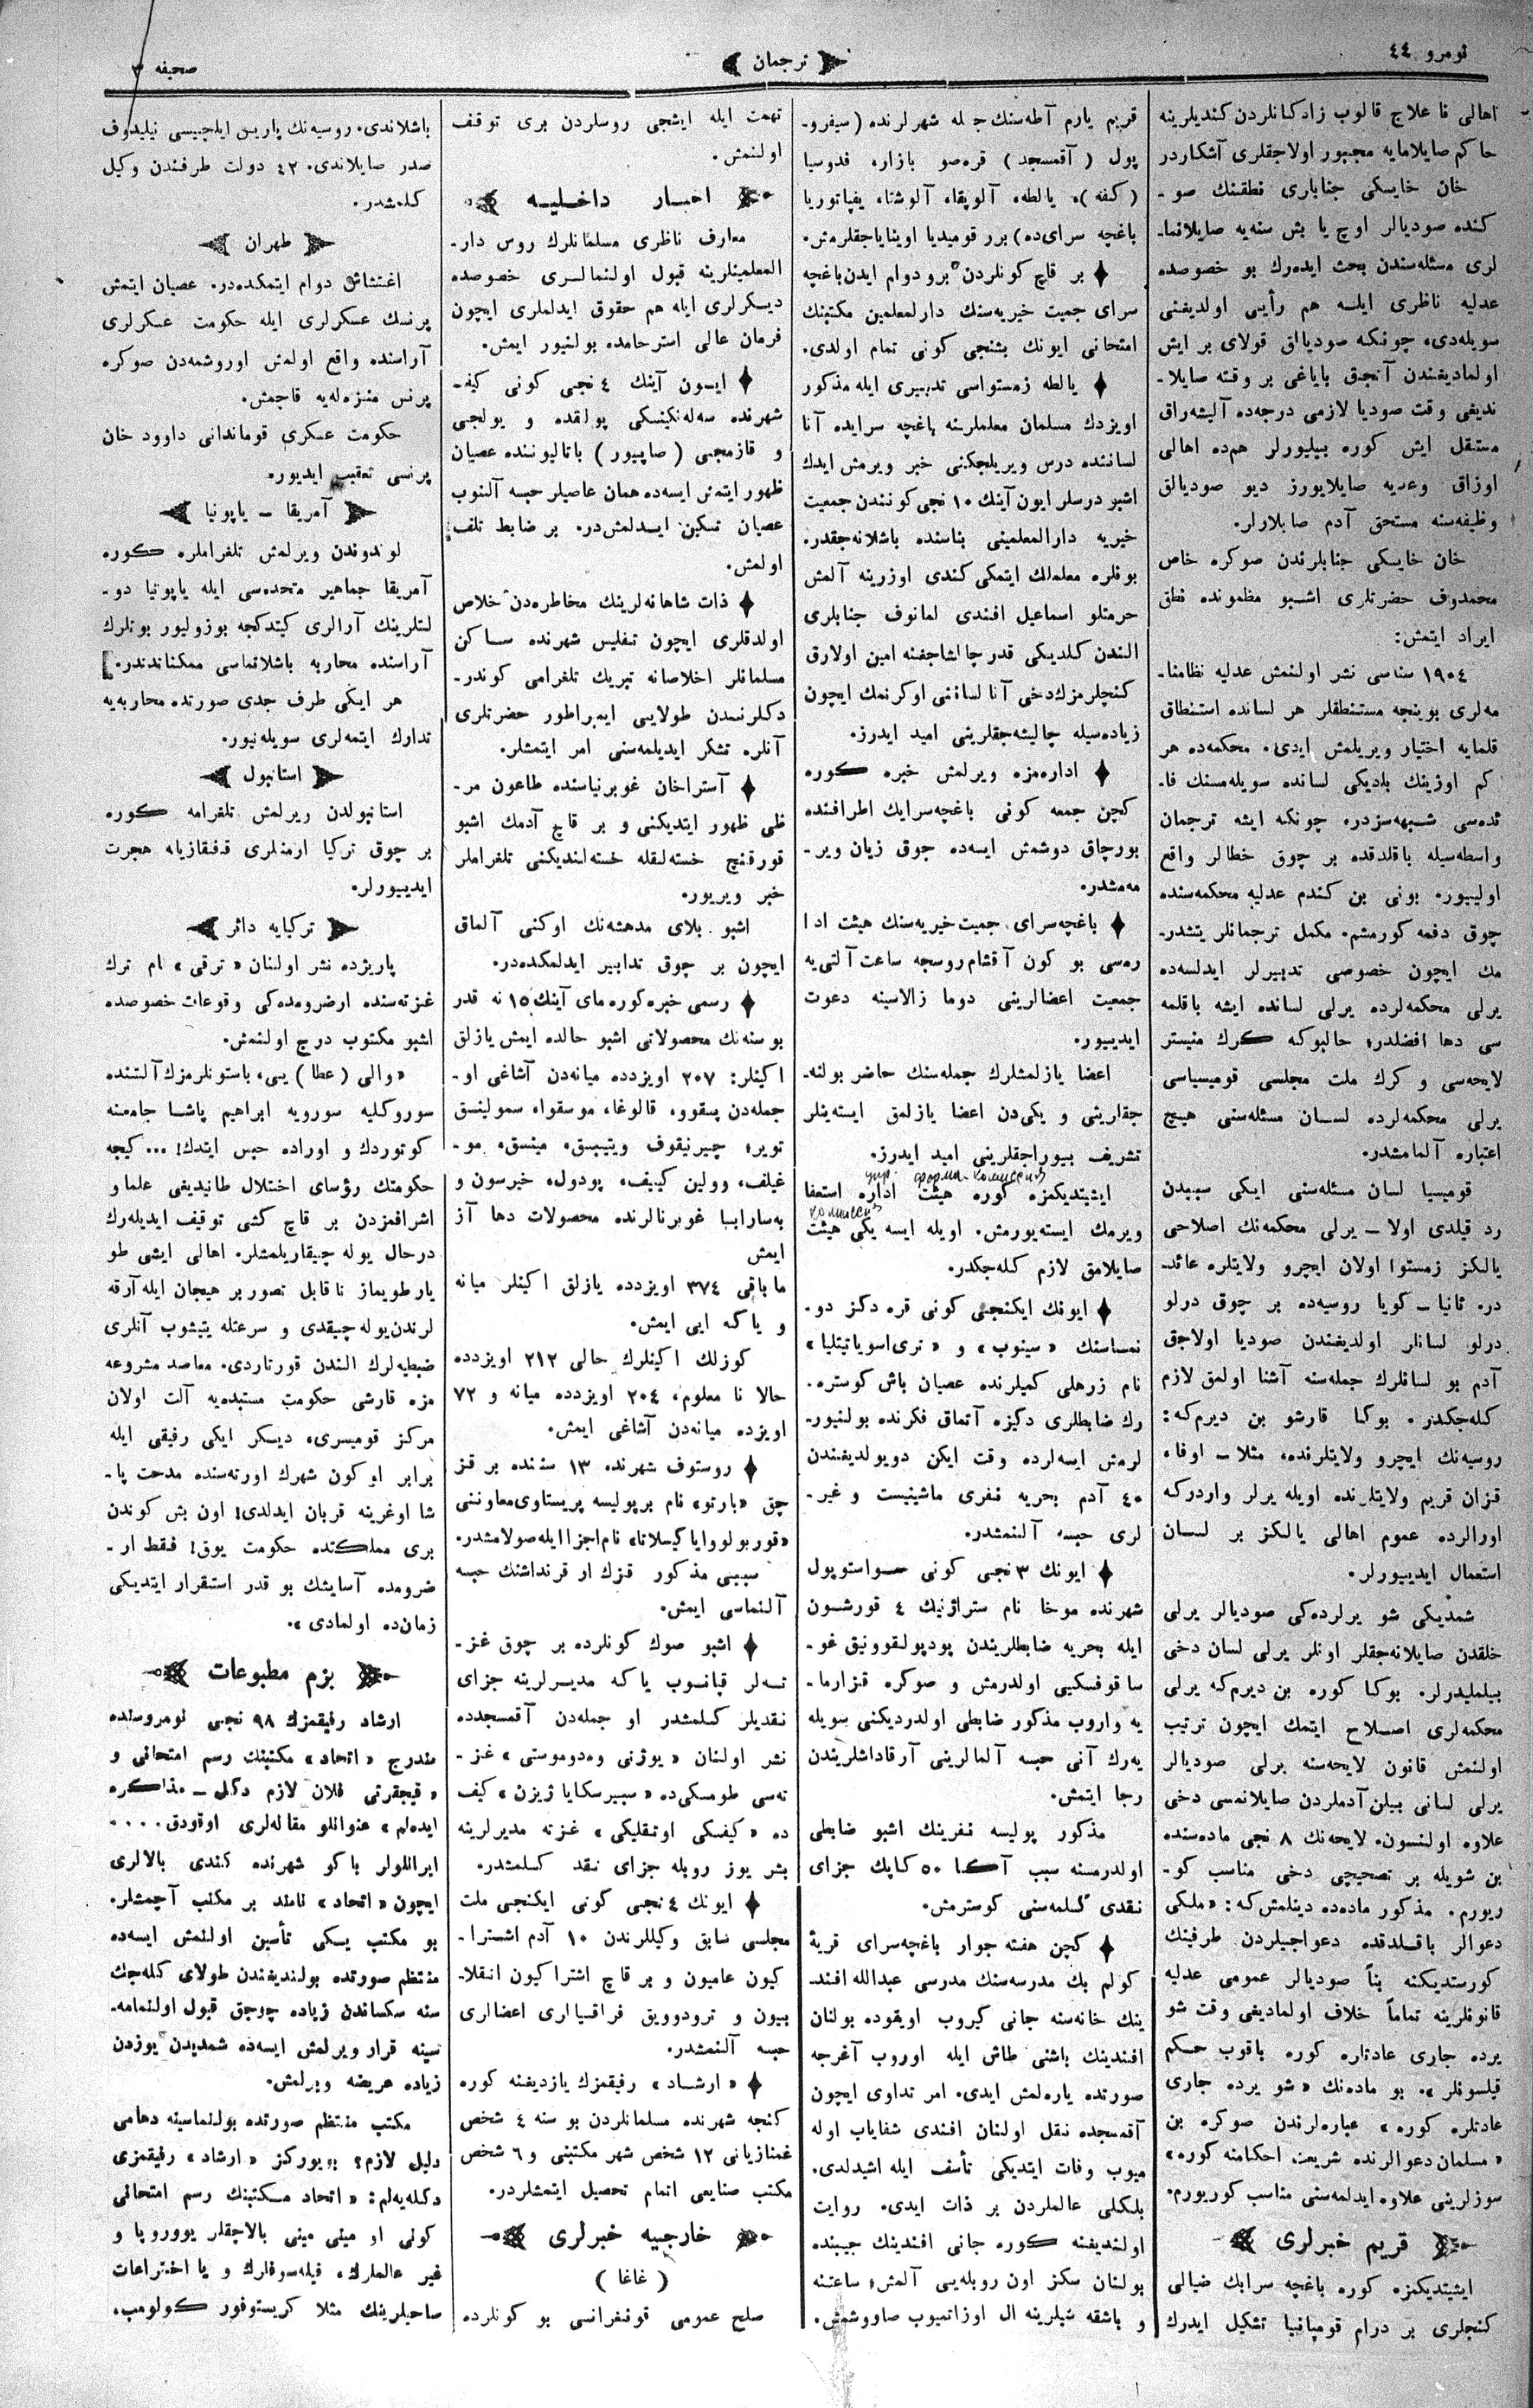 نومرو ٤٤
ترجمان
صحيفه ٣
اهالى نا علاج قالوب زادكانلردن كنديلرينه
حاكم صايلامايه مجبور اولاجقلرى آشكاردر
خان خايسكى جنابارى نطقنك صو-
كنده صوديالر اوچ يا بش سنه‌يه صايلانما-
لرى مسئله‌سندن بحث ايده‌رك بو خصوصده
عدليه ناظرى ايله هم رأيى اولديغنى
سويله‌دى، چونكه صودياق قولاى بر ايش
اولماديغندن آنجق باياغى بر وقته صايلا-
نديغى وقت صوديا لازمى درجه‌ده آليشه‌راق
مستقل ايش كوره بيليورلر هم‌ده اهالى
اوزاق وعده‌يه صايلايورز ديو صوديالق
وظيفه‌سنه مستحق آدم صايلارلر.
خان خايسكى جنابلرندن صوكره خاص
محمدوف حضرتلرى اشبو مظمونده نطق
ايراد ايتمش:
١٩٠٤ سناسى نشر اولنمش عدليه نظامنا-
مه‌لرى بوينجه مستنطقلر هر لسانده استنطاق
قلمايه اختيار ويريلمش ايدى. محكمه‌ده هر
كم اوزينك بلديكى لسانده سويله‌مسنك فا-
ئده‌سى شبهه‌سزدر، چونكه ايشه ترجمان
واسطه‌سيله باقلدقده بر چوق خطالر واقع
اوليبور. بونى بن كندم عدليه محكمه‌سنده
چوق دفعه كورمشم. مكمل ترجمانلر يتشدر-
مك ايچون خصوصى تدبيرلر ايدلسه‌ده
يرلى محكمه‌لرده يرلى لسانده ايشه باقلمه
سى دها افضلدر؛ حالبوكه كرك منيستر
لايحه‌سى و كرك ملت مجلسى قوميسياسى
يرلى محكمه‌لرده لسان مسئله‌سنى هيچ
اعتباره آلمامشدر.
قوميسيا لسان مسئله‌سنى ايكى سببدن
رد قيلدى اولا ـ يرلى محكمه‌نك اصلاحى
يالكز زمستوا اولان ايچرو ولايتلره عائد-
در. ثانيا ـ كويا روسيه‌ده بر چوق درلو
درلو لسانلر اولديغندن صوديا اولاجق
آدم بو لسانلرك جمله‌سنه آشنا اولمق لازم
كله‌جكدر. بوكا قارشو بن ديرم‌كه:
روسيه‌نك ايچرو ولايتلرنده، مثلا ـ اوفا،
قزان قريم ولايتلرنده اويله يرلر واردركه
اورالرده عموم اهالى يالكز بر لسان
استعمال ايديبورلر.
شمديكى شو يرلرده‌كى صوديالر يرلى
خلقدن صايلانه‌جقلر اونلر يرلى لسان دخى
بيلمليدرلر. بوكا كوره بن ديرم‌كه يرلى
محكمه‌لرى اصلاح ايتمك ايچون ترتيب
اولنمش قانون لايحه‌سنه يرلى صوديالر
يرلى لسانى بيلن آدملردن صايلانمسى دخى
علاوه اولنسون. لايحه‌نك ٨ نجى ماده‌سنده
بن شويله بر تصحيحى دخى مناسب كو-
ريورم. مذكور ماده‌ده دينلمش‌كه: «ملكى
دعوالر باقلدقده دعواجيلردن طرفينك
كورستديكنه بناً صوديالر عمومى عدليه
قانونلرينه تماماً خلاف اولماديغى وقت شو
يرده جارى عادتلره كوره باقوب حكم
قيلسونلر». بو ماده‌نك «شو يرده جارى
عادتلره كوره» عباره‌لرندن صوكره بن
«مسلمان دعوالرنده شريعت احكامنه كوره»
سوزلرينى علاوه ايدلمه‌سنى مناسب كوريورم.
قريم خبرلرى
ايشتديكمزه كوره باغچه سرايك ضيالى
كنجلرى بر درام قومپانيا تشكيل ايدرك
قريم يارم آطه‌سنك جمله شهرلرنده (سيفرو-
پول (آقمسجد) قره‌صو بازار، فدوسيا
(كفه)، يالطه، آلوپقا، آلوشتا، يفپاتوريا
باغچه سراى‌ده) برر قوميديا اوينايا‌جقلرمش.
بر قاچ كونلردن برو دوام ايدن باغچه
سراى جميت خيريه‌سنك دارلمعلمين مكتبنك
امتحانى ايونك بشنجى كونى تمام اولدى.
يالطه زمستواسى تدبيرى ايله مذكور
اويزدك مسلمان معلملرينه باغچه سرايده آنا
لساننده درس ويريلجكنى خبر ويرمش ايدك
اشبو درسلر ايون آينك ١٠ نجى كونندن جمعيت
خيريه دارالمعلمينى بناسنده باشلانه‌جقدر.
بونلره معلملك ايتمكى كندى اوزرينه آلمش
حرمتلو اسماعيل افندى لمانوف جنابلرى
الندن كلديكى قدر چالشاجغنه امين اولارق
كنجلرمزك‌دخى آنا لساننى اوكرنمك ايچون
زياده‌سيله چاليشه‌جقلرينى اميد ايدرز.
اداره‌مزه ويرلمش خبره كوره
كچن جمعه كونى باغچه‌سرايك اطرافنده
بورچاق دوشمش ايسه‌ده چوق زيان وير-
مه‌مشدر.
باغچه‌سراى جميت خيريه‌سنك هيئت ادا
ره‌سى بو كون آقشام روسجه ساعت آلتى‌يه
جمعيت اعضالرينى دوما زالاسينه دعوت
ايديبور.
اعضا يازلمشلرك جمله‌سنك حاضر بولنه-
جقارينى و يكى‌دن اعضا يازلمق ايسته‌ينلر
تشريف بيوراجقلرينى اميد ايدرز.
ايشتديكمزه كوره هيئت اداره استعفا
ويرمك ايسته‌يورمش. اويله ايسه يكى هيئت
صايلامق لازم كله‌جكدر.
ايونك ايكنجى كونى قره دكز دو-
نمياسنك «سينوب» و «ترى‌اسوياتيتليا»
نام زرهلى كميلرنده عصيان باش كوستره-
رك ضابطلرى دكيزه آتماق فكرنده بولنيور-
لرمش ايسه‌لرده وقت ايكن دويولديغندن
٤٠ آدم بحريه نفرى ماشينيست و غير-
لرى حبسه آلنمشدر.
ايونك ٣ نجى كونى سواستوپول
شهرنده موخا نام ستراژنيك ٤ قورشون
ايله بحريه ضابطلريندن پودپولقوونيق غو-
ساقوفسكيى اولدرمش و صوكره قزارما-
يه واروب مذكور ضابطى اولدرديكنى سويله
يه‌رك آنى حبسه آلمالرينى آرقاداشلريندن
رجا ايتمش.
مذكور پوليسه نفرينك اشبو ضابطى
اولدرمسنه سبب آكا ٥٠ كاپك جزاى
نقدى كسلمه‌سنى كوسترمش.
كچن هفته جوار باغچه‌سراى قريهٔ
كولم بك مدرسه‌سنك مدرسى عبدالله افند-
ينك خانه‌سنه جانى كيروب اويقوده بولنان
افندينك باشنى طاش ايله اوروب آغرجه
صورتده ياره‌لمش ايدى. امر تداوى ايچون
آقمسجده نقل اولنان افندى شفاياب اوله
ميوب وفات ايتديكى تأسف ايله اشيدلدى.
بلكلى عالملردن بر ذات ايدى. روايت
اولنديغنه كوره جانى افندينك جيبنده
بولنان سكز اون روبله‌يى آلمش؛ ساعتنه
و باشقه شيلرينه ال اوزاتميوب صاووشمش.
تهمت ايله ايشجى روسلردن برى توقف
اولنمش.
اخبار داخليه
معارف ناظرى مسلمانلرك روس دار-
المعلمينلرينه قبول اولنمالرى خصوصده
ديكرلرى ايله هم حقوق ايدلملرى ايچون
فرمان عالى استرحامده بولنيور ايمش.
ايون آينك ٤ نجى كونى كيف-
شهرنده سه‌له‌نكينسكى پولقده و يولجى
و قازمجى (صاپيور) باتاليوننده عصيان
ظهور ايتمش ايسه‌ده همان عاصيلر حبسه آلنوب
عصيان تسكين ايدلمش‌در. بر ضابط تلف
اولمش.
ذات شاهانه‌لرينك مخاطره‌دن خلاص
اولدقلرى ايچون تفليس شهرنده ساكن
مسلمانلر اخلاصانه تبريك تلغرامى كوندر-
دكلرنمدن طولايى ايمبراطور حضرتلرى
آنلره تشكر ايديلمه‌سنى امر ايتمشلر.
آستراخان غوبرنياسنده طاعون مر-
ظى ظهور ايتديكنى و بر قاچ آدمك اشبو
قورقنچ خسته‌لقله خسته‌لنديكنى تلغراملر
خبر ويريور.
اشبو بلاى مدهشه‌نك اوكنى آلماق
ايچون بر چوق تدابير ايدلمكده‌در.
رسمى خبره كوره ماى آينك ١٥ نه قدر
بو سنه‌نك محصولاتى اشبو حالده ايمش يازلق
اكينلر: ٢٠٧ اويزدده ميانه‌دن آشاغى او-
جمله‌دن پسقوو، قالوغا، موسقوا، سمولينسق
تویر، چيرنيقوف ويتيبسق، مينسق، مو-
غيلف، وولين كييف، پودول، خيرسون و
به‌سارابيا غوبرنالرنده محصولات دها آز
ايمش
ماباقى ٣٧٤ اويزدده يازلق اكينلر ميانه
و ياكه ايى ايمش.
كوزلك اكينلرك حالى ٢١٢ اويزدده
حالا نا معلوم، ٢٠٤ اويزدده ميانه و ٧٢
اويزده ميانه‌دن آشاغى ايمش.
روستوف شهرنده ١٣ سننده بر قز
چق «بارتو» نام بر پوليسه پريستاوى معاوننى
«قوربولووايا كيسلاتا» نام اجزا ايله صولامشدر.
سببى مذكور قزك ار قرنداشنك حبسه
آلنماسى ايمش.
اشبو صوك كونلرده بر چوق غز-
ته‌لر قپانوب ياكه مديرلرينه جزاى
نقديلر كسلمشدر او جمله‌دن آقمسجدده
نشر اولنان «يوژنى وه‌دوموستى» غز-
ته‌سى طومسكى‌ده «سيبرسكايا ژيزن» كيف
ده «كيفسكى اوتقليكى» غزته مديرلرينه
بشر يوز روبله جزاى نقد كسلمشدر.
ايونك ٤ نجى كونى ايكنجى ملت
مجلسى سابق وكيللرندن ١٠ آدم اشترا-
كيون عاميون و بر قاچ اشتراكيون انقلا-
بيون و ترودوويق فراقسياارى اعضالرى
حبسه آلنمشدر.
«ارشاد» رفيقمزك يازديغنه كوره
كنجه شهرنده مسلمانلردن بو سنه ٤ شخص
غمنازيانى ١٢ شخص شهر مكتبنى و ٦ شخص
مكتب صنايعى اتمام تحصيل ايتمشلردر.
خارجيه خبرلرى
(غاغا)
صلح عمومى قونفرانسى بو كونلرده
باشلاندى. روسيه‌نك پاريس ايلجيسى نيليدوف
صدر صايلاندى. ٤٢ دولت طرفندن وكيل
كلمشدر.
طهران
اغتشاش دوام ايتمكده‌در. عصيان ايتمش
پرنسك عسكرلرى ايله حكومت عسكرلرى
آراسنده واقع اولمش اوروشمه‌دن صوكره
پرنس منزله‌يه قاچمش.
حكومت عسكرى قوماندانى داوود خان
پرنسى تعقيب ايديور.
آمريقا ـ ياپونيا
لوندوندن ويرلمش تلغراملره كوره
آمريقا جماهير متحده‌سى ايله ياپونيا دو-
لتلرينك آرالرى كيتدكجه بوزوليور بونلرك
آراسنده محاربه باشلانماسى ممكناتدندر.
هر ايكى طرف جدى صورتده محاربه‌يه
تدارك ايتمه‌لرى سويله‌نيور.
استانبول
استانبولدن ويرلمش تلغرامه كوره
بر چوق تركيا ارمنلرى قفقازيايه هجرت
ايديبورلر.
تركيايه دائر
پاريژده نشر اولنان «ترقى» نام ترك
غزته‌سنده ارضرومده‌كى وقوعات خصوصده
اشبو مكتوب درج اولنمش.
«والى (عطا) يى، باستونلرمزك آلتنده
سوروكليه سورويه ابراهيم پاشا جامعنه
كوتوردك و اوراده حبس ايتدك! ... كيجه
حكومتك رؤساى اختلال طانيديغى علما و
اشرافمزدن بر قاچ كشى توقيف ايديله‌رك
درحال يوله چيقاريلمشلر. اهالى ايشى طو
يار طويماز ناقابل تصور بر هيجان ايله آرقه
لرندن يوله چيقدى و سرعتله يتيشوب آنلرى
ضبطيه‌لرك الندن قورتاردى. مقاصد مشروعه
مزه قارشى حكومت مستبده‌يه آلت اولان
مركز قوميسرى، ديكر ايكى رفيقى ايله
برابر او كون شهرك اورته‌سنده مدحت پا-
شا اوغرينه قربان ايدلدى! اون بش كوندن
برى مملكتده حكومت يوق! فقط ار-
ضرومده آسايشك بو قدر استقرار ايتديكى
زمان‌ده اولمادى».
بزم مطبوعات
ارشاد رفيقمزك ٩٨ نجى نومروسنده
مندرج «اتحاد» مكتبنك رسم امتحانى و
«قيچقرتى فلان لازم دكل ـ مذاكره
ايده‌لم» عنوانلو مقاله‌لرى اوقودق....
ايرانلولر باكو شهرنده كندى بالالرى
ايچون «اتحاد» نامند بر مكتب آچمشلر.
بو مكتب يكى تأسين اولنمش ايسه‌ده
منتظم صورتده بولنديغندن طولاى كله‌جك
سنه سكساندن زياده چوجق قبول اولنمامه-
سينه قرار ويرلمش ايسه‌ده شمديدن يوزدن
زياده عريضه ويرلمش.
مكتب منتظم صورتده بولنماسينه دهامى
دليل لازم؟ بويوركز «ارشاد» رفيقمزى
دكله‌يه‌لم: «اتحاد مكتبنك رسم امتحانى
كونى او مينى مينى بالاجقلر يوروپا و
غير عالملرك، فيله‌سوفلرك و يا اختراعات
صاحبلرينك مثلا كريستوفور كولومب،